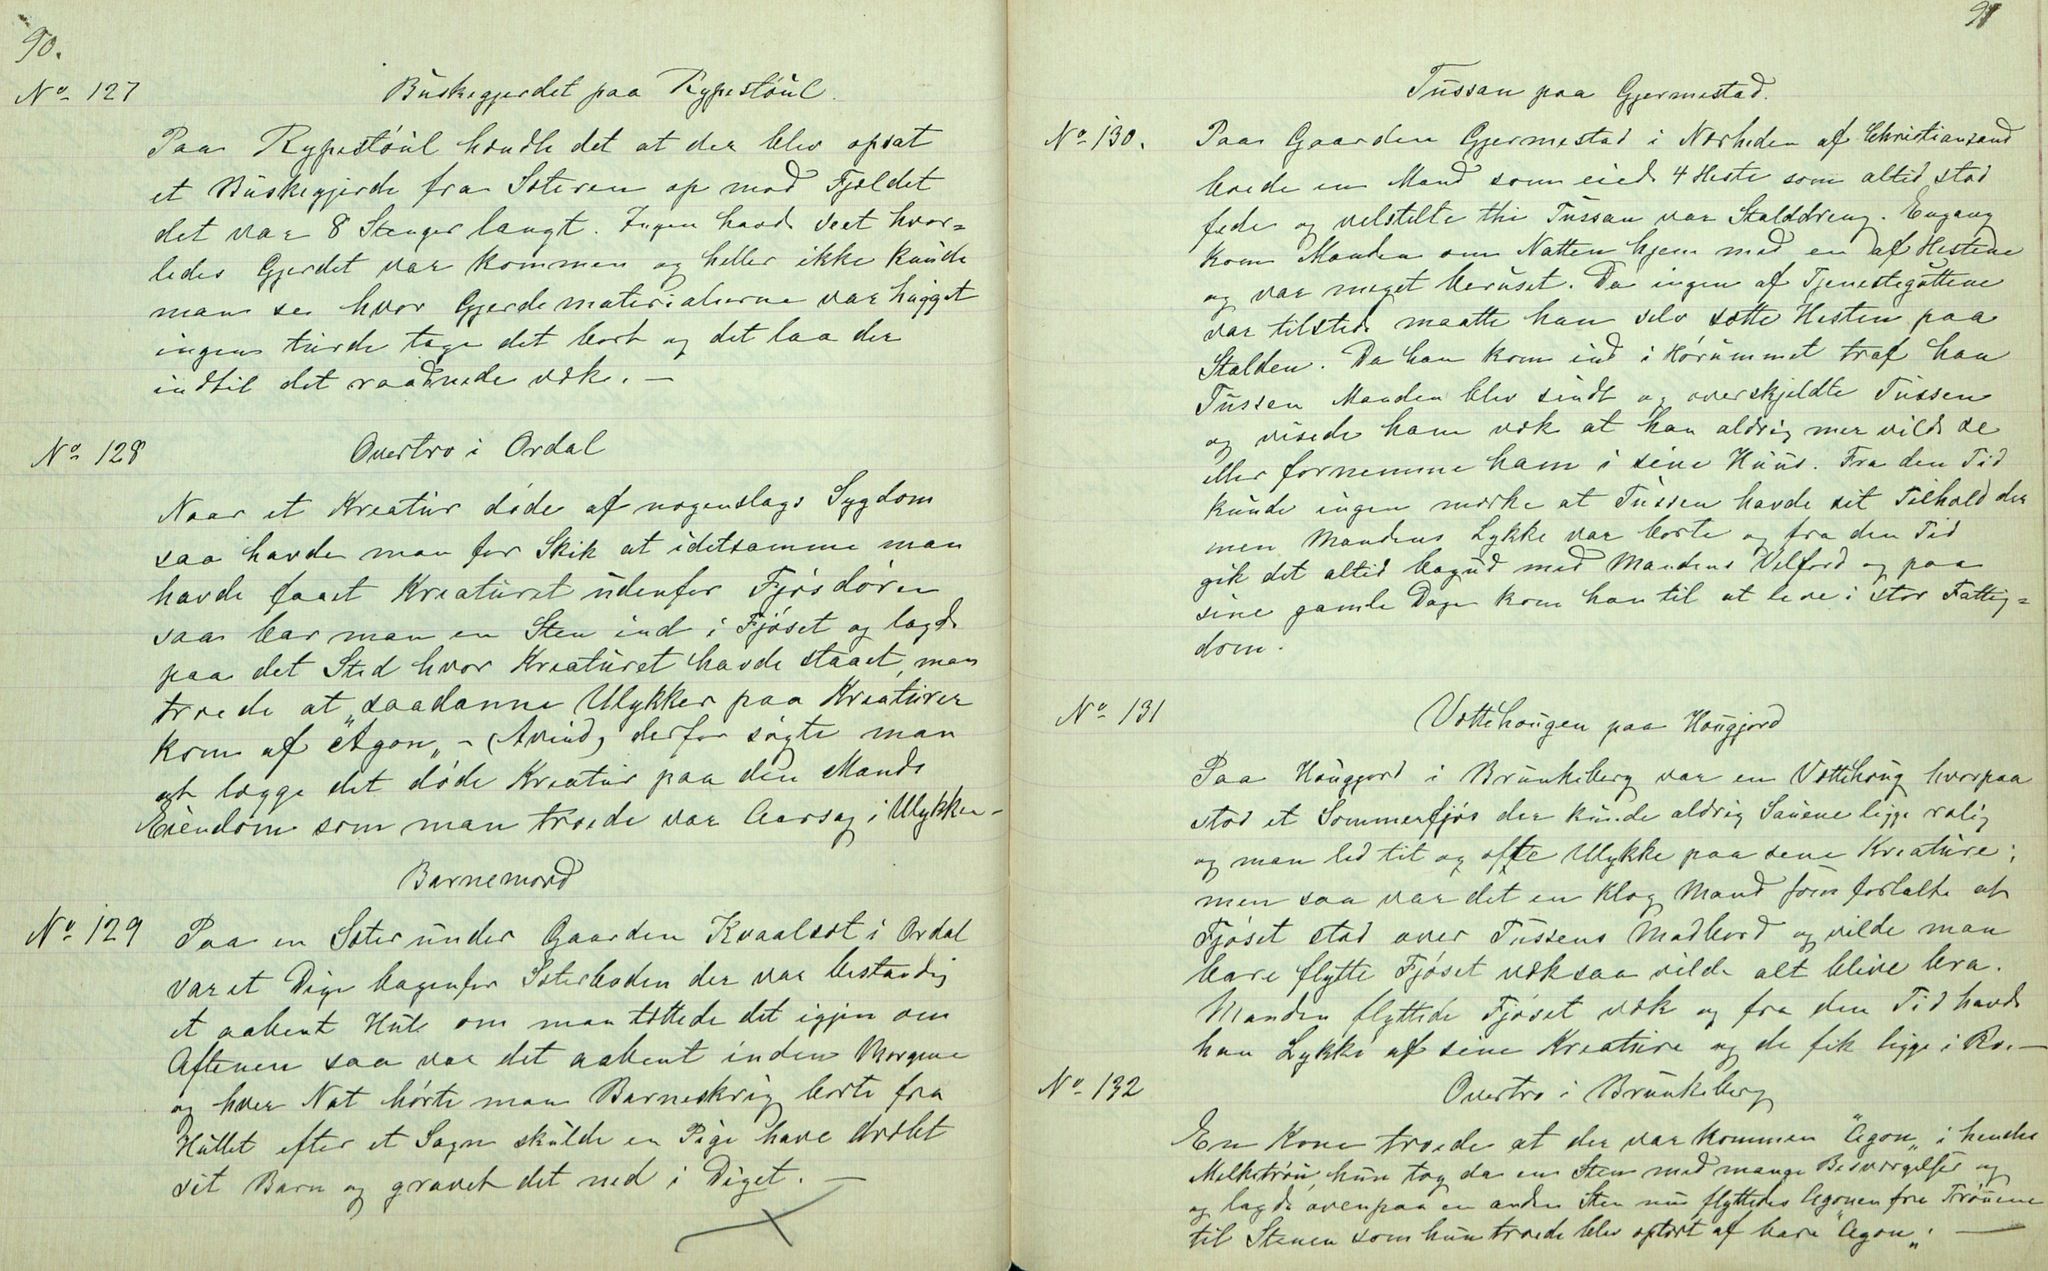 90.
No 127
Buskegjerdet paa Rypestöul.
Paa Rypestöul hændte det at der blev opsat
et Buskegjerde fra Sæteren op mod Fjeldet
det var 8 Stenger langt. Ingen havde seet hvor-
ledes Gjerdet var kommen og heller ikke kunde
man se hvor Gjerdematerialierne var hugget
ingen turde tage det bort og det laa der
indtil det raadnede væk. —
No 128
Overtro i Ordal
Naar et Kreatur døde af nogenslags Sygdom
saa havde man for Skik at idetsamme man
havde faaet Kreaturet udenfor Fjøsdøren
saa bar man en Sten ind i Fjøset og lagde
paa det Sted hvor Kreaturet havde staaet, man
troede at saadanne Ulykker paa Kreaturer
kom af "Agon„ – (Avind) derfor søgte man
at lægge det døde Kreatur paa den Mands
Eiendom som man troede var Aarsag i Ulykken –
Barnemord
No 129
Paa en Sæter under Gaarden Kvaalsæt i Ordal
var et Dige bagenfor Sæterboden der var bestandig
et aabent Hul om man tættede det igjen om
Aftenen saa var det aabent inden Morgene
og hver Nat hørte man Barneskrig borte fra
Hullet efter et Sagn skulde en Pige have dræbt
sit Barn og gravet det ned i Diget. —
91
Tussan paa Gjermestad.
No 130.
Paa Gaarden Gjermestad i Nærheden af Christiansand
boede en Mand som eiede 4 Heste som altid stod
fede og velstelte thi Tussan var Stalddreng. Engang
kom Manden om Natten hjem med en af Hestene
og var meget beruset. Da ingen af Tjenestegutterne
var tilstede maatte han selv sætte Hesten paa
Stalden. Da han kom ind i Hørummet traf han
Tussen Manden blev sindt og overskjeldte Tussen
og visede ham væk at han aldrig mer vilde se
eller fornemme ham i sine Huus. Fra den Tid
kunde ingen mærke at Tussen havde sit Tilhold der
men Mandens Lykke var borte og fra den Tid
gik det altid bagud med Mandens Velferd og paa
sine gamle Dage kom han til at leve i stor Fattig-
dom.
No 131
Vættehougen paa Hougjord
Paa Hougjord i Brunkeberg var en Vættehoug hvorpaa
stod et Sommerfjøs der kunde aldrig Sauene ligge rolig
og man led tit og ofte Ulykke paa sene Kreature;
men saa var det en klog Mand som fortalte at
Fjøset stod over Tussens Madbord og vilde man
bare flytte Fjøset væk saa vilde alt blive bra.
Manden flyttede Fjøset væk og fra den Tid havde
han Lykke af sine Kreature og de fik ligge i Ro. —
No 132
Overtro i Brunkeberg
En Kone troede at der var kommen "Agon„ i hendes
Melketrøu, hun tog da en Sten med mange Besværgelser og
og lagde ovenpaa en anden Sten nu flyttedes Agonen fra Trøuene
til Stenen som hun troede blev optært af bare "Agon„. —